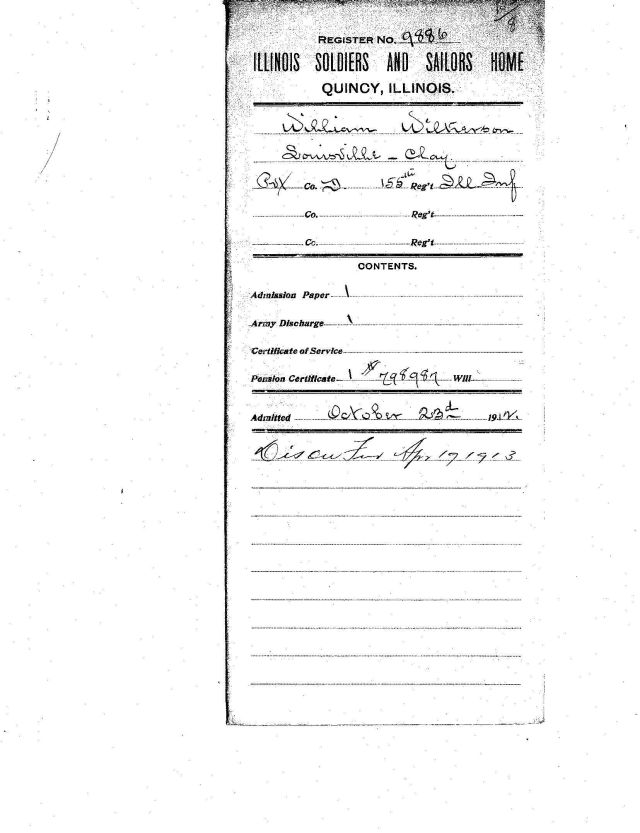 8
REGISTER NO. 9886
ILLINOIS SOLDIERS AND SAILORS HOME
QUINCY, ILLINOIS.
William Wilkerson
Louisville - Clay
Pvt Co. D 155th Reg't Ill Inf
Co. Reg't
Co. Reg't
CONTENTS.
Admission Paper 1
Army Discharge 1
Certificate of Service
Pension Certificate 1 # 798987 Will
Admitted October 23d 1912.
Apr 17 1913